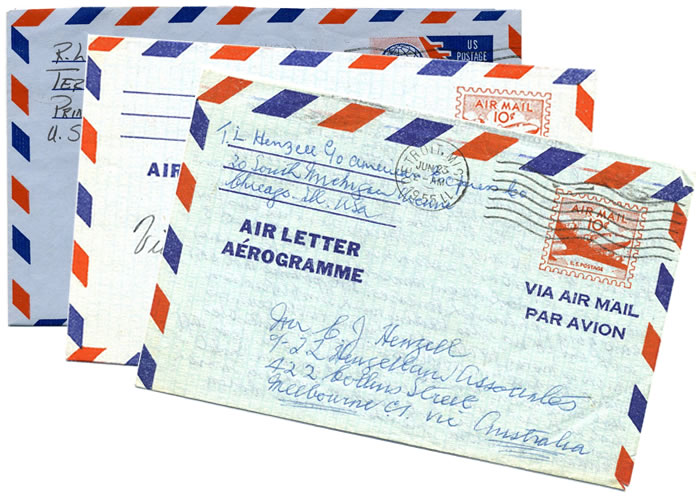 R. L
TER
PRIN
U. S
US
POSTAGE
AIR MAIL
10¢
AIR
Vi
T. L Henzell C/o American Express Co
30 South Michigan Avenue
Chicago. Ill. USA
DETROIT, MI
JUN 23
AM
195
AIR LETTER
AÉROGRAMME
AIR MAIL
10¢
U.S. POSTAGE
VIA AIR MAIL
PAR AVION
Mr J Henzell
Henzell and Associates
422 Collins Street
Melbourne C1. Vic
Australia